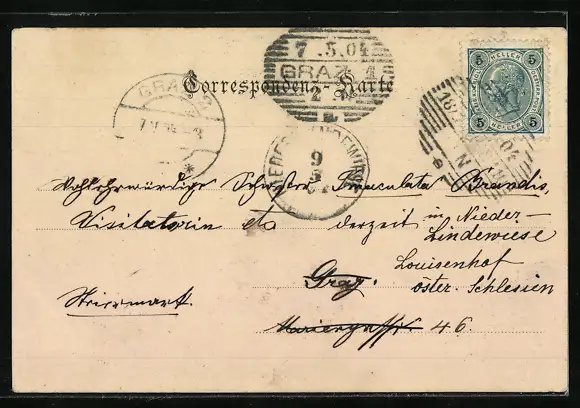 7.5.04
GRAZ 1
Correspondenz-Karte
5 5
HELLER
5 HELLER 5
GRAZ
9
5
Wohlehrwürdige Schwester Immaculata Brandis,
Visitatorin etc derzeit in Nieder-
Lindewiese
Louisenhof
Graz. öster. Schlesien
Steiermark.
Mariengasse 46.